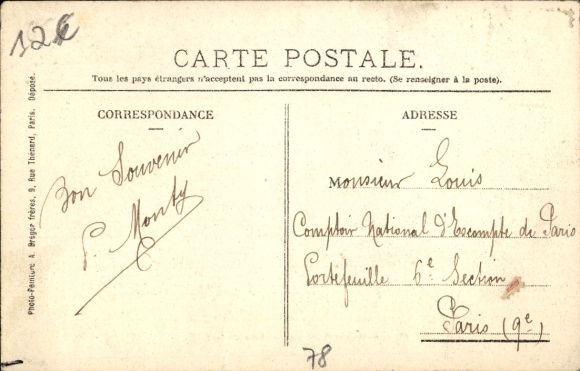 12€
CARTE POSTALE.
Tous les pays étrangers n'acceptent pas la correspondance au recto. (Se renseigner à la poste).
CORRESPONDANCE
Bon Souvenir
P. Monty
ADRESSE
Monsieur Louis
Comptoir National d'Escompte de Paris
Portefeuille 6e Section
Paris (9e)
78
Photo-Peinture A. Bréger frères, 9, Rue Thénard, Paris. Déposé.